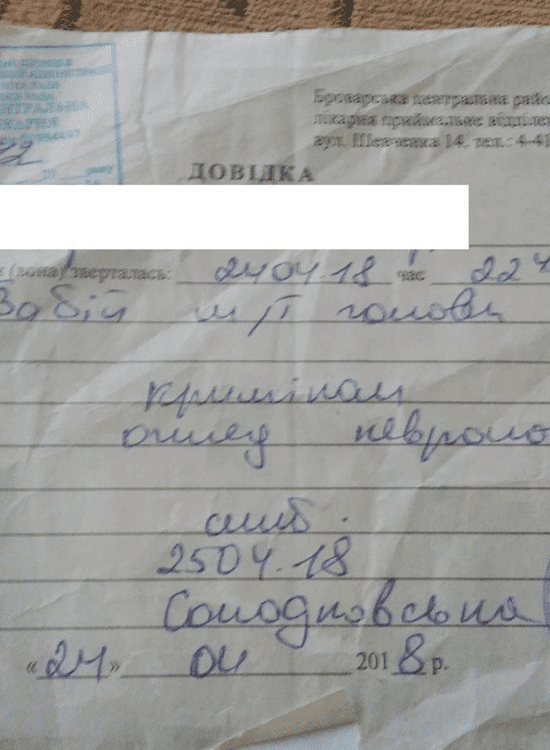 ЦЕНТРАЛЬНА
ЛІКАРНЯ
Броварська центральна райо
лікарня приймальне відділен
вул. Шевченка 14, тел.: 4-41
ДОВІДКА
(вона) зверталась: 24 04.18 час 22
Забій м/т голови
кримінал
огляд невроло
амб.
25 04.18
Солодковська
«24» 04 2018 р.